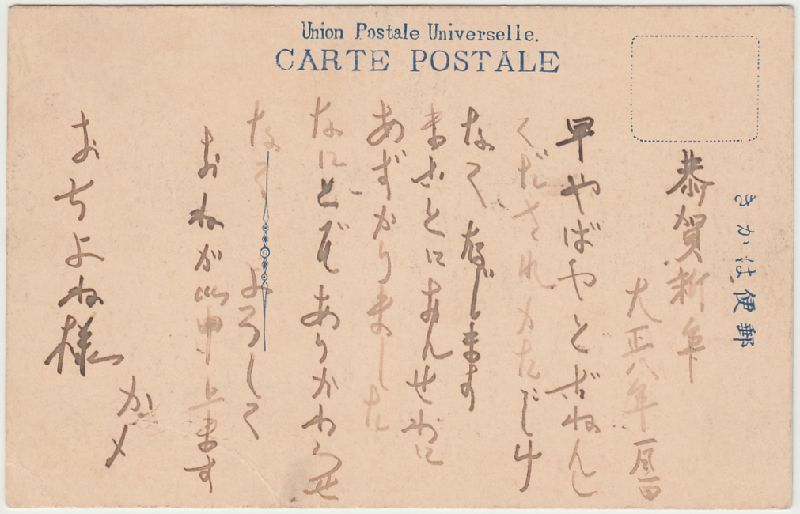 Union Postale Universelle.
CARTE POSTALE
きかは便郵
恭賀新年
大正八年一月一日
早やばやとざねんし
くだされかたじけ
なくなじます
まことにあんせわに
あずかりました
なにとぞありかわらせ
なくよろしく
おねがい申上ます
カメ
おちよね様